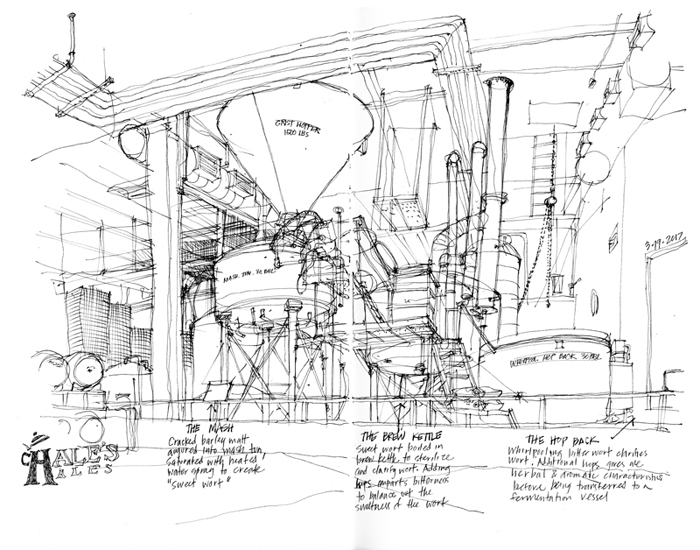 GRIST HOPPER
1500 LBS
MASH TUN
3-19-2017
WHIRLPOOL HOP BACK 30 BBL
HALE'S
ALES
THE MASH
Cracked barley malt
augured into mash tun,
saturated with heated
water going to create
"sweet wort"
THE BREW KETTLE
Sweet wort boiled in
brew kettle to sterilize
and clarify wort. Adding
hops imparts bitterness
to balance out the
sweetness of the work
THE HOP BACK
Whirlpooling bitter wort clarifies
wort. Additional hops gives ale
herbal & aromatic characteristics
before being transferred to a
fermentation vessel